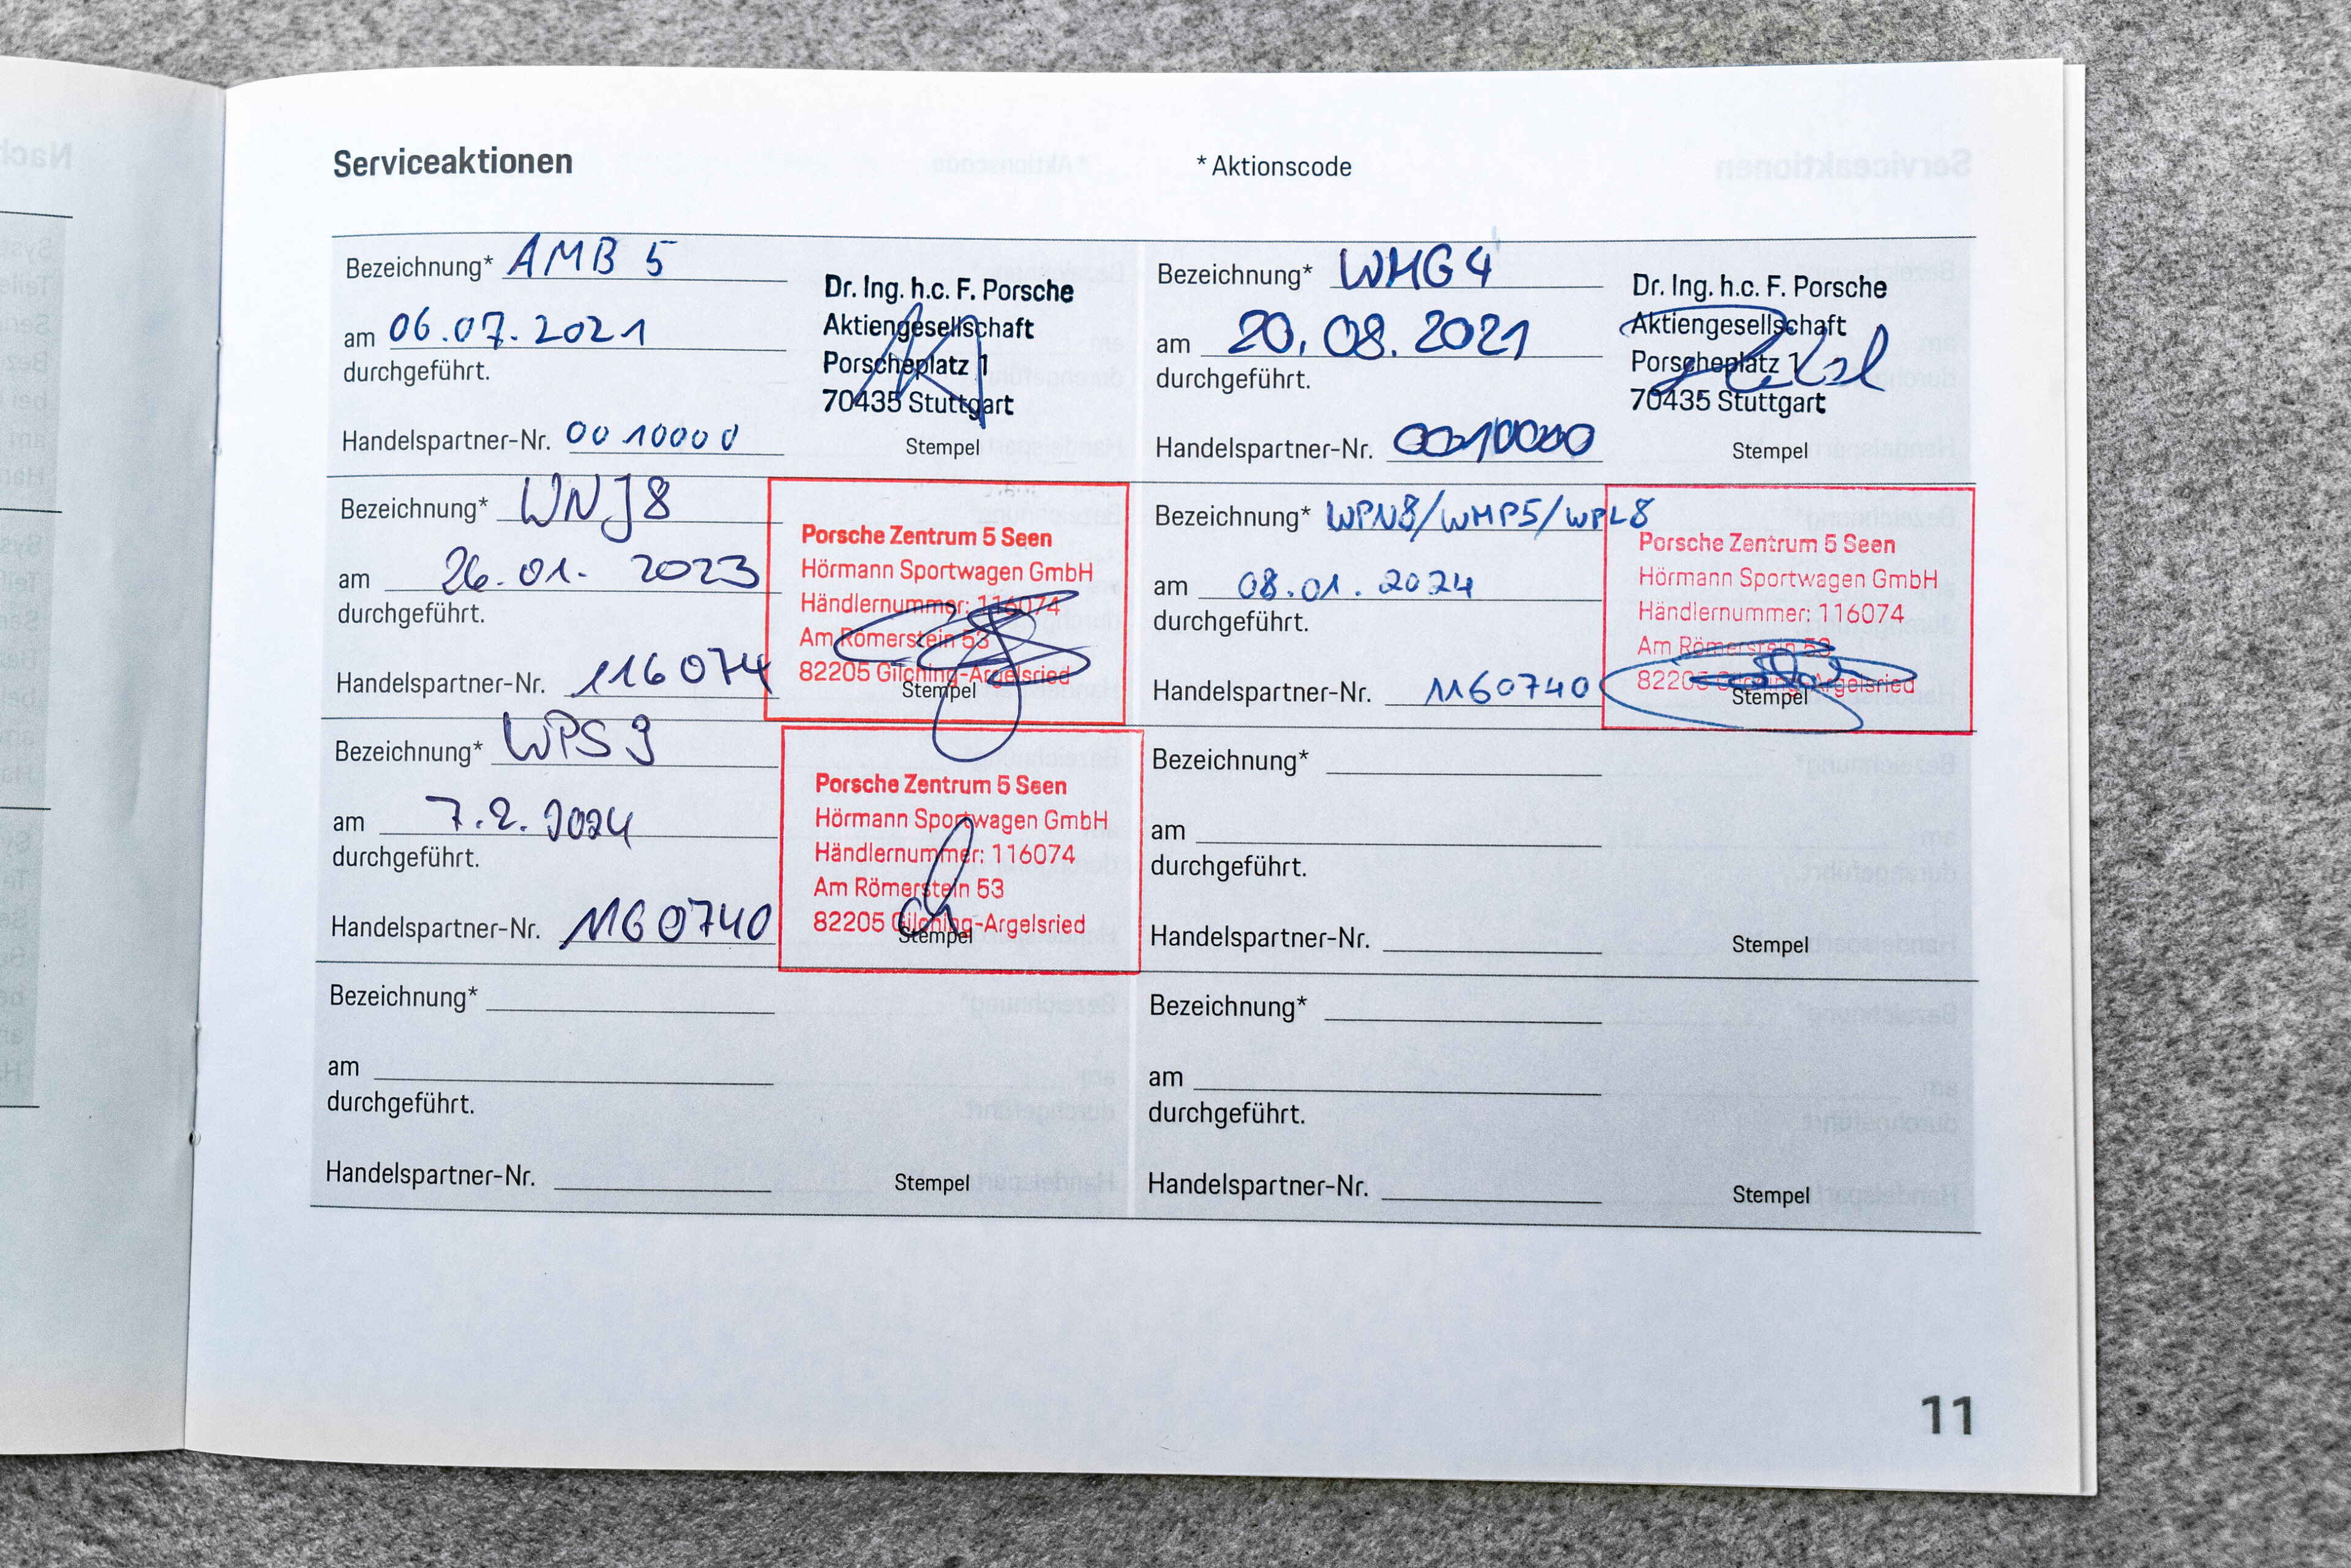 Serviceaktionen
* Aktionscode
Bezeichnung* AMB 5
am 06.07.2021
durchgeführt.
Handelspartner-Nr. 0010000
Dr. Ing. h.c. F. Porsche
Aktiengesellschaft
Porscheplatz 1
70435 Stuttgart
Stempel
Bezeichnung* WMG4
am 20.08.2021
durchgeführt.
Handelspartner-Nr. 0010000
Dr. Ing. h.c. F. Porsche
Aktiengesellschaft
Porscheplatz 1
70435 Stuttgart
Stempel
Bezeichnung* WNJ8
am 26.01. 2023
durchgeführt.
Handelspartner-Nr. 116074
Porsche Zentrum 5 Seen
Hörmann Sportwagen GmbH
Händlernummer: 116074
Am Römerstein 53
82205 Gilching-Argelsried
Stempel
Bezeichnung* WPN8/WMP5/WPL8
am 08.01.2024
durchgeführt.
Handelspartner-Nr. 1160740
Porsche Zentrum 5 Seen
Hörmann Sportwagen GmbH
Händlernummer: 116074
Am Römerstein 53
82205 Gilching-Argelsried
Stempel
Bezeichnung* WPS9
am 7.2.2024
durchgeführt.
Handelspartner-Nr. 1160740
Porsche Zentrum 5 Seen
Hörmann Sportwagen GmbH
Händlernummer: 116074
Am Römerstein 53
82205 Gilching-Argelsried
Stempel
Bezeichnung*
am
durchgeführt.
Handelspartner-Nr.
Stempel
Bezeichnung*
am
durchgeführt.
Handelspartner-Nr.
Stempel
Bezeichnung*
am
durchgeführt.
Handelspartner-Nr.
Stempel
11